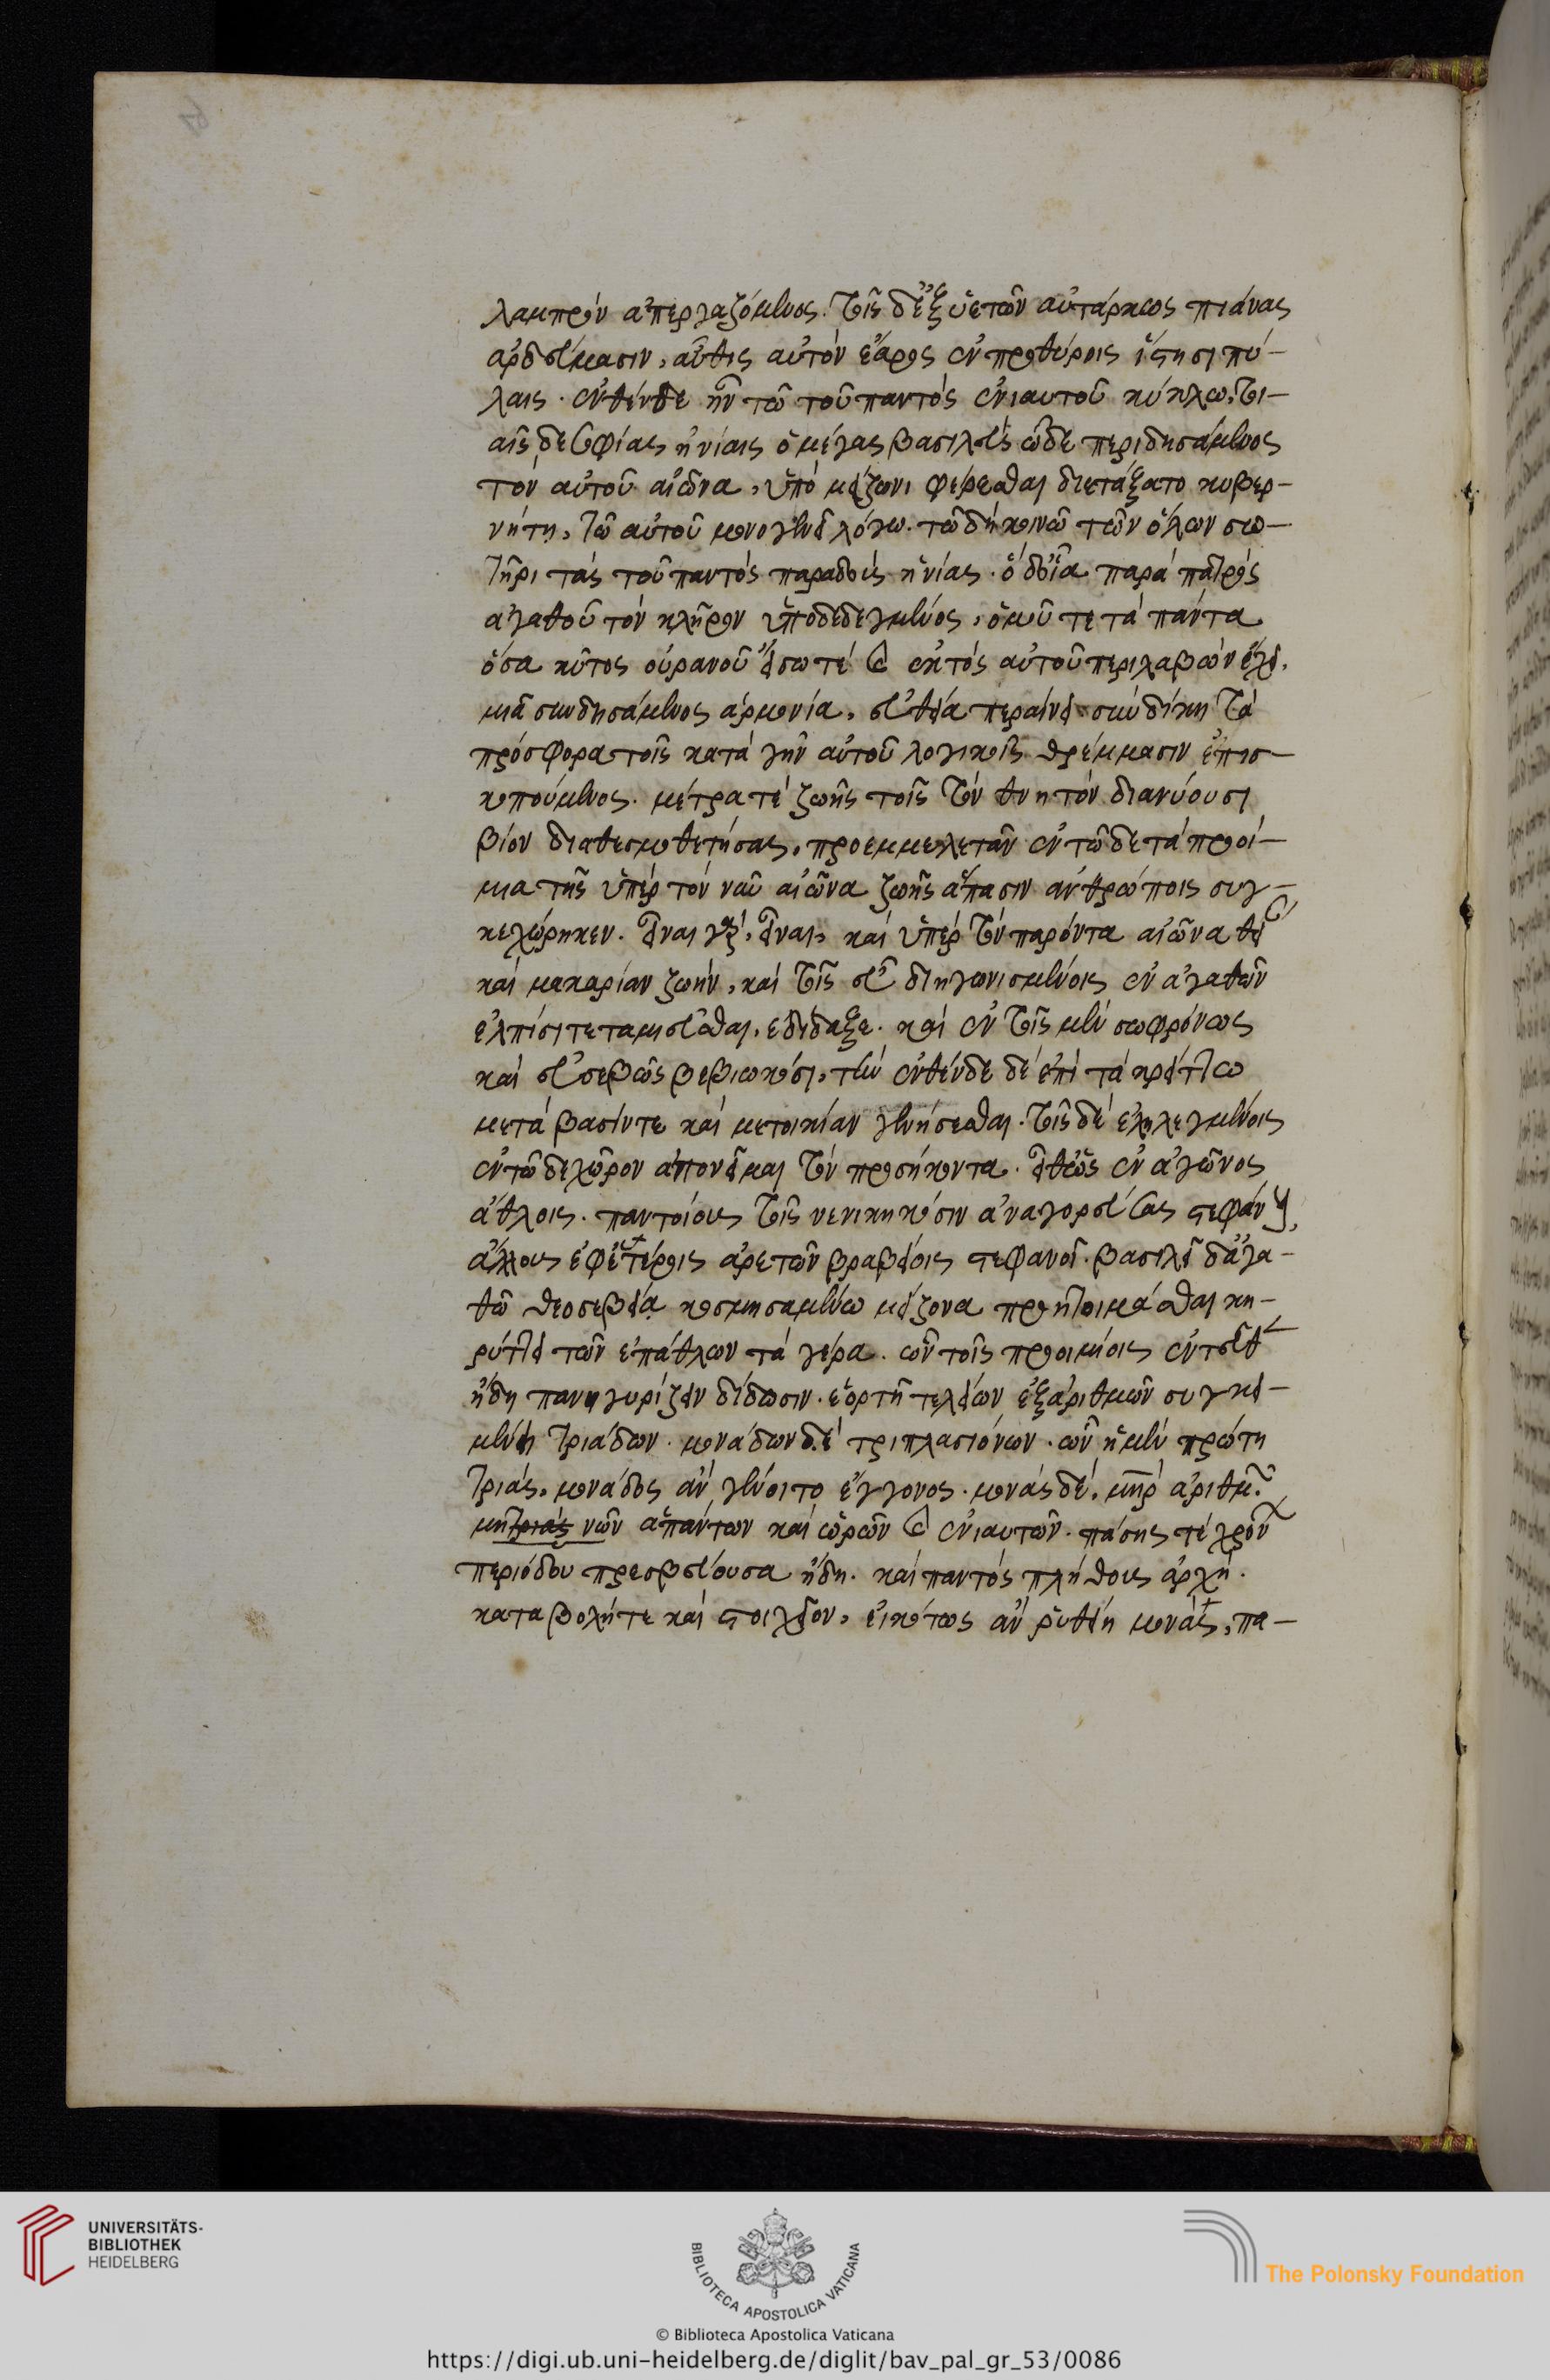 λαμπρὸν ἀπεργαζόμενος. τοῖς δ' ἐξ ὑετῶν αὐτάρκως πιάνας
ἀρδεύμασιν, αὖθις αὐτὸν ἔαρος ἐν προθύροις ἵστησι πύ-
λαις. ἐνθένδε
τῶ τοῦ παντὸς ἐνιαυτοῦ κύκλω. τοι-
αῖσδε σοφίας ἡνίαις ὁ μέγας βασιλεὺς ὧδε περιδησάμενος
τὸν αὐτοῦ αἰῶνα, ὑπὸ μείζονι φέρεσθαι διετάξατο κυβερ-
νήτη, τῶ αὐτοῦ μονογενεῖ λόγω. τῶ δὴ κοινῶ τῶν ὅλων σω-
τῆρι τὰς τοῦ παντὸς παραδοὺς ἡνίας. ὁ δ' οἷα παρὰ πατρὸς
ἀγαθοῦ τὸν κλῆρον ὑποδεδεγμένος, ὁμοῦ τε τὰ πάντα
ὅσα κῦτος οὐρανοῦ εἴσω τὲ καὶ ἐκτὸς αὐτοῦ περιλαβὼν ἔχει,
μιᾶ συνδησάμενος ἁρμονία, εὐθεία περαίνει σὺν δίκη τὰ
πρόσφορα τοῖς κατὰ γῆν αὐτοῦ λογικοῖς θρέμμασιν ἐπισ-
κοπούμενος. μέτρα τὲ ζωῆς τοῖς τὸν θνητὸν διανύουσι
βίον διαθεσμοθετήσας, προεμμελετᾶν ἐν τῶδε τὰ προοί-
μια τῆς ὑπὲρ τὸν νῦν αἰῶνα ζωῆς ἅπασιν ἀνθρώποις συγ-
κεχώρηκεν. εἶναι γὰρ, εἶναι, καὶ ὑπὲρ τὸν παρόντα αἰῶνα θεί
καὶ μακαρίαν ζωὴν, καὶ τοῖς εὖ διηγωνισμένοις ἐν ἀγαθῶν
ἐλπίσι τεταμιεῦσθαι, ἐδίδαξε. καὶ ἐν τοῖς μὲν σωφρόνως
καὶ εὐσεβῶς βεβιωκόσι, τὴν ἐνθένδε δὲ ἐπὶ τὰ κρείττω
μετάβασίν τε καὶ μετοικίαν γενήσεσθαι. τοῖς δὲ ἐληλεγμένοις
ἐν τῶδε χῶρον ἀπονεῖμαι τὸν προσήκοντα. εἶθ' ὡς ἐν ἀγῶνος
ἄθλοις. παντοίους τοῖς νενικηκόσιν ἀναγορεύσας στεφάνους,
ἄλλους ἐφ' ἑτέροις ἀρετῶν βραβείοις στεφανοῖ. βασιλεῖ δ' ἀγα-
θῶ θεοσεβεία κοσμησαμένω μείζονα προητοιμάσθαι κη-
ρύττει τῶν ἐπάθλων τὰ γέρα. ὧν τοῖς προοιμίοις ἐντεῦθ
ἤδη πανηγυρίζειν δίδωσιν. ἑορτῆ τελείων ἐξ ἀριθμῶν συγκει-
μένη τριάδων. μονάδων δὲ τριπλασιόνων. ὧν ἡ μὲν πρώτη
τριάς, μονάδος ἂν γένοιτο ἔγγονος. μονὰς δὲ, μηρ ἀριθμ
μητριάς νῶν ἁπάντων καὶ ὡρῶν καὶ ἐνιαυτῶν. πάσης τὲ χρον
περιόδου πρεσβεύουσα ἤδη. καὶ παντὸς πλήθους ἀρχή.
καταβολή τε καὶ στοιχεῖον, εἰκότως ἂν ῥυθείη μονάς, πα-
UNIVERSITÄTS-
BIBLIOTHEK
HEIDELBERG
BIBLIOTECA APOSTOLICA VATICANA
The Polonsky Foundation
© Biblioteca Apostolica Vaticana
https://digi.ub.uni-heidelberg.de/diglit/bav_pal_gr_53/0086